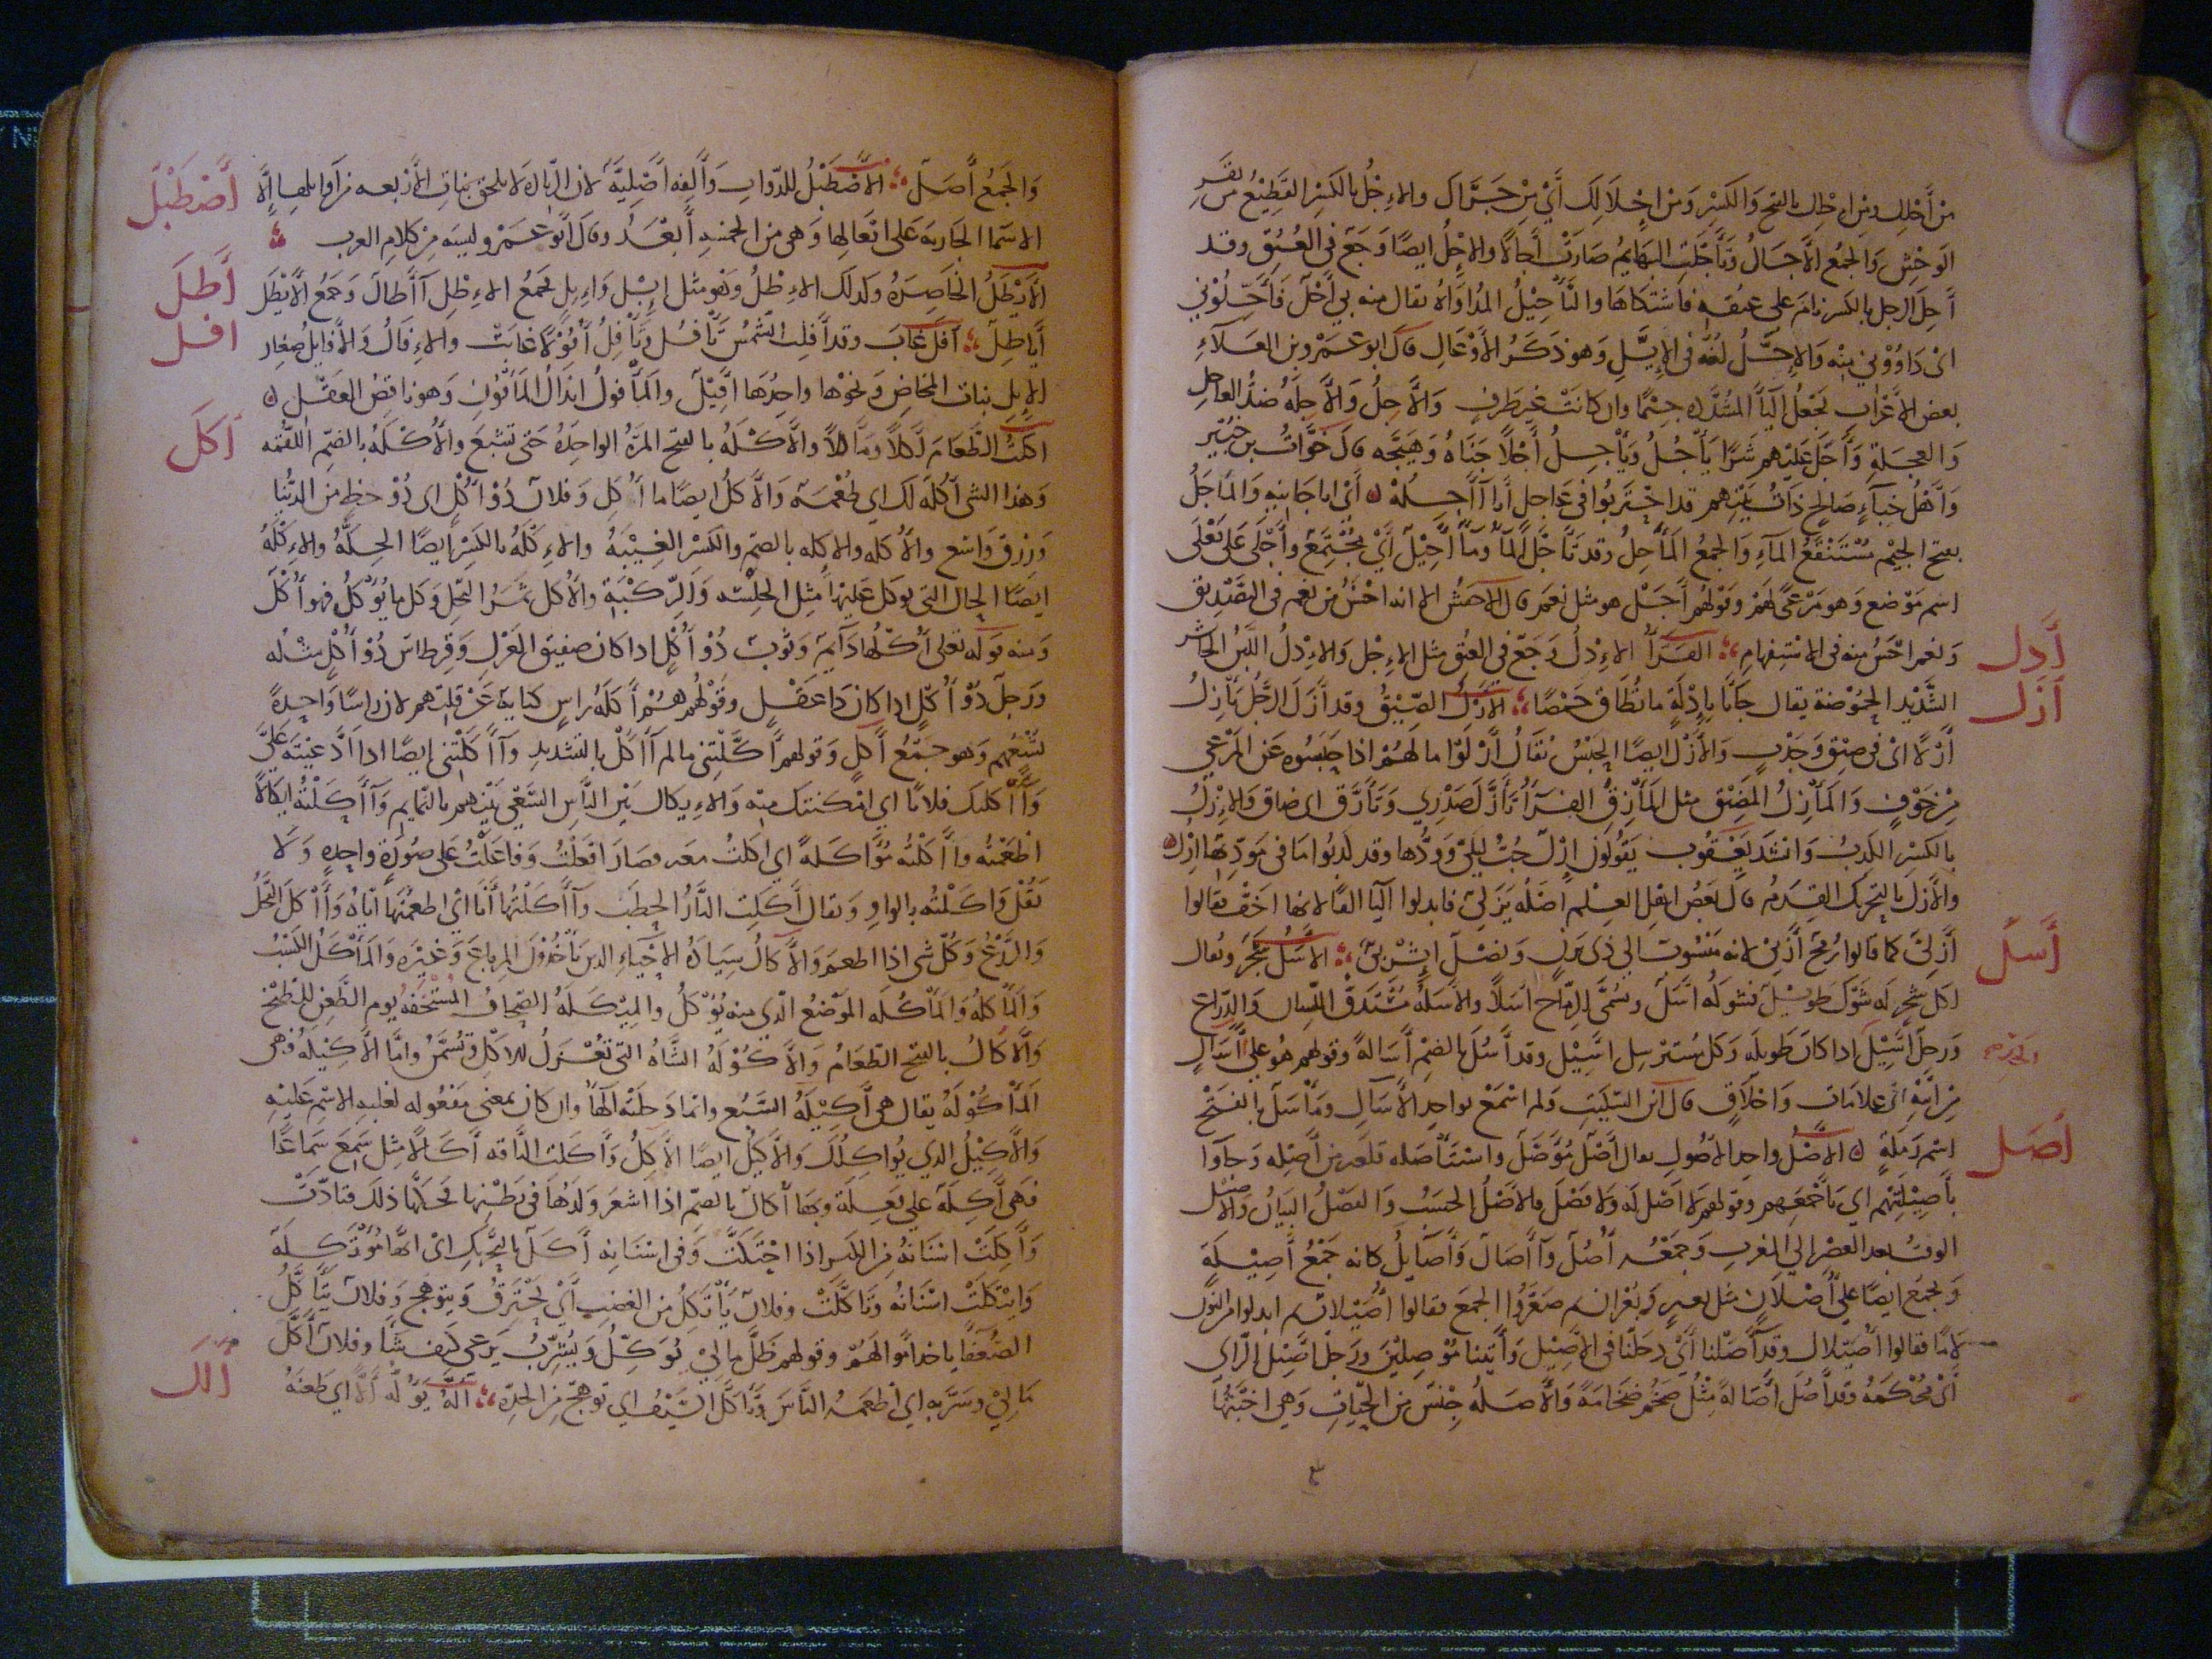 من أجلك ومن إجلك بالفتح والكسر ومن إجلالك أي من جرّاك والإجل بالكسر القطيع من بقر
الوحش والجمع الآجال وتأجلت البهائم صارت آجالا والإجل ايضا وجع في العنق وقد
أجل الرجل بالكسر نام على عنقه فاشتكاها والتأجيل المداواة يقال منه بي إجل فأجّلوني
اى داوُوني منه والإجّل لغة في الإيّل وهو ذكر الأوعال قال ابو عمرو بن العلاء
بعض الأعراب يجعل الياء المشددة جيما وان كانت غير طرف والآجل والآجلة ضد العاجل
والعجلة وأجل عليهم شرا يأجُل ويأجِل أجلا جناه وهيجه قال خوّات بن جبير
وأهل خباء صالح ذات بينهم قد احتربوا في عاجل أنا آجله ن أي انا جانيه والمأجل
بفتح الجيم مستنقع الماء والجمع المآجل وقد تأجل الماء وماء أجيل أي مجتمع وأجلى على فعلى
اسم موضع وهو مرعى لهم وقولهم أجل هو مثل نعم قال الاخفش الا انه احسن من نعم في التصديق
ونعم احسن منه في الاستفهام الفراء الإدل وجع في العنق مثل الإجل والإدل اللبن الخاثر
أدل
الشديد الحموضة يقال جاءنا بإدلة ما تطاق حمضا الأزل الضيق وقد أزل الرجل يأزل
أزل
أزلا اى في ضيق وجدب والأزل ايضا الحبس يقال أزلوا مالهم اذا حبسوه عن المرعي
من خوف والمأزل المضيق مثل المأزق الفراء تأزل صدري وتأزق اى ضاق والإزل
بالكسر الكذب وانشد يعقوب يقولون إزل حب ليلى وودها وقد كذبوا ما في مودتها إزل ن
والأزل بالتحريك القدم قال بعض اهل العلم أصله يزلي فابدلوا الياء الفا لانها اخف فقالوا
أزلي كما قالوا رمح أزني لانه منسوب الي ذي يزن ونصل أثربي الأسل شجر ويقال
أسل
لكل شجر له شوك طويل فشوكه أسل وتسمى الرماح أسلا والأسلة مستدق اللسان والذراع
ورجل أسيل اذا كان طويله وكل مسترسل أسيل وقد أسل بالضم أسالة وقولهم هو علي آسال
من أبيه اى علامات واخلاق قال ابن السكيت ولم اسمع بواحد الآسال ومأسل بالفتح
اسم رملة ن الأصل واحد الأصول يقال أصل مؤصل واستأصله قلعه من أصله وجاءوا
أصل
بأصيلتهم اي بأجمعهم وقولهم لا أصل له ولا فصل فالأصل الحسب والفصل البيان والاصيل
الوقت بعد العصر الي المغرب وجمعه أصل وآصال وأصائل كانه جمع أصيلة
ويجمع ايضا علي أصلان مثل بعير وبعران ثم صغروا الجمع فقالوا أصيلان ثم ابدلوا من النون
لاما فقالوا أصيلال وقد آصلنا أي دخلنا في الأصيل وأتينا مؤصلين ورجل أصيل الراي
أى محكمه وقد أصل أصالة مثل ضخم ضخامة والأصلة جنس من الحيات وهي اخبثها
والجمع أصل الاصطبل للدواب وألفه أصلية لان الزيادة لا تلحق بنات الاربعه من اوائلها إلا
أصطبل
الاسماء الجارية على افعالها وهي من الخمسة أبعد وقال أبو عمرو وليس من كلام العرب
الأيطل الخاصرة وكذلك الإطل وهو مثل إبل وإبل وجمع الإطل آطال وجمع الأيطل
أطل
أياطل أفل غاب وقد أفلت الشمس تأفل وتأفل أفولا غابت والإفال والأفايل صغار
افل
الإبل بنات المخاض ونحوها واحدها أفيل والمأفول ابدال المأفون وهو ناقص العقل ن
اكلت الطعام أكلا ومأكلا والأكلة بالفتح المرة الواحدة حتى تشبع والأكلة بالضم اللقمة
أكل
وهذا الشى أكلة لك اي طعمة والأكل ايضا ما أكل وفلان ذو أكل اى ذو حظ من الدنيا
ورزق واسع والأكلة والإكلة بالضم والكسر الغيبة والإكلة بالكسر ايضا الحكة والإكلة
ايضا الحال التي يؤكل عليها مثل الجلسة والركبة والأكل ثمر النخل وكل ما يؤكل فهو أكل
ومنه قوله تعلى أكلها دآيم وثوب ذو أكل اذا كان صفيق الغزل وقرطاس ذو أكل مثله
ورجل ذو أكل اذا كان ذا عقل وقولهم هم أكلة راس كناية عن قلتهم لان راسا واحدة
تشبعهم وهو جمع آكل وقولهم أكّلتني ما لم آكل بالتشديد وآكلتني ايضا اذا ادعيته علي
وآكلتك فلانا اي امكنتك منه والإيكال بين الناس السعي بينهم بالنمايم وآكلته ايكالا
اطعمته وآكلته مؤاكلة اي اكلت معه فصار افعلت وفاعلت على صورة واحدة ولا
تقل واكلته بالواو ويقال أكلت النار الحطب وآكلتها أنا اي اطعمتها اياه وآكل النخل
والزرع وكل شى اذا اطعم والآكال سادة الاحياء الذين يأخذون المرباع وغيره والمأكل الكسب
والمأكلة والمأكلة الموضع الذي منه يؤكل والمئكلة الصحاف المستخفة يوم الظعن للطبخ
والأكال بالفتح الطعام والأكولة الشاة التي تعزل للاكل وتسمن وأما الأكيلة فهي
المأكولة يقال هي أكيلة السبع وانما دخلته الهاء وان كان بمعنى مفعولة لغلبة الاسم عليه
والأكيل الذي يؤاكلك والأكيل ايضا الآكل وأكلت الناقة أكالا مثل سمع سماعا
فهي أكلة علي فعلة وبها أكال بالضم اذا اشعر ولدها في بطنها فحكها ذلك فتأذت
وأكلت اسنانه من الكبر اذا احتكت وفي اسنانه أكل بالتحريك اى انها مؤتكلة
وايتكلت اسنانه وتأكلت وفلان يأتكل من الغضب أي يحترق ويتوهج وفلان يتأكل
الضعفا يا خد اموالهم وقولهم ظل مالي يؤكل ويشرب يرعى كيف شا وفلان أكل
مالي وشربه اي أطعمه الناس وتأكل السيف اي توهج من الحدة أله يؤله ألا اي طعنه
ألل